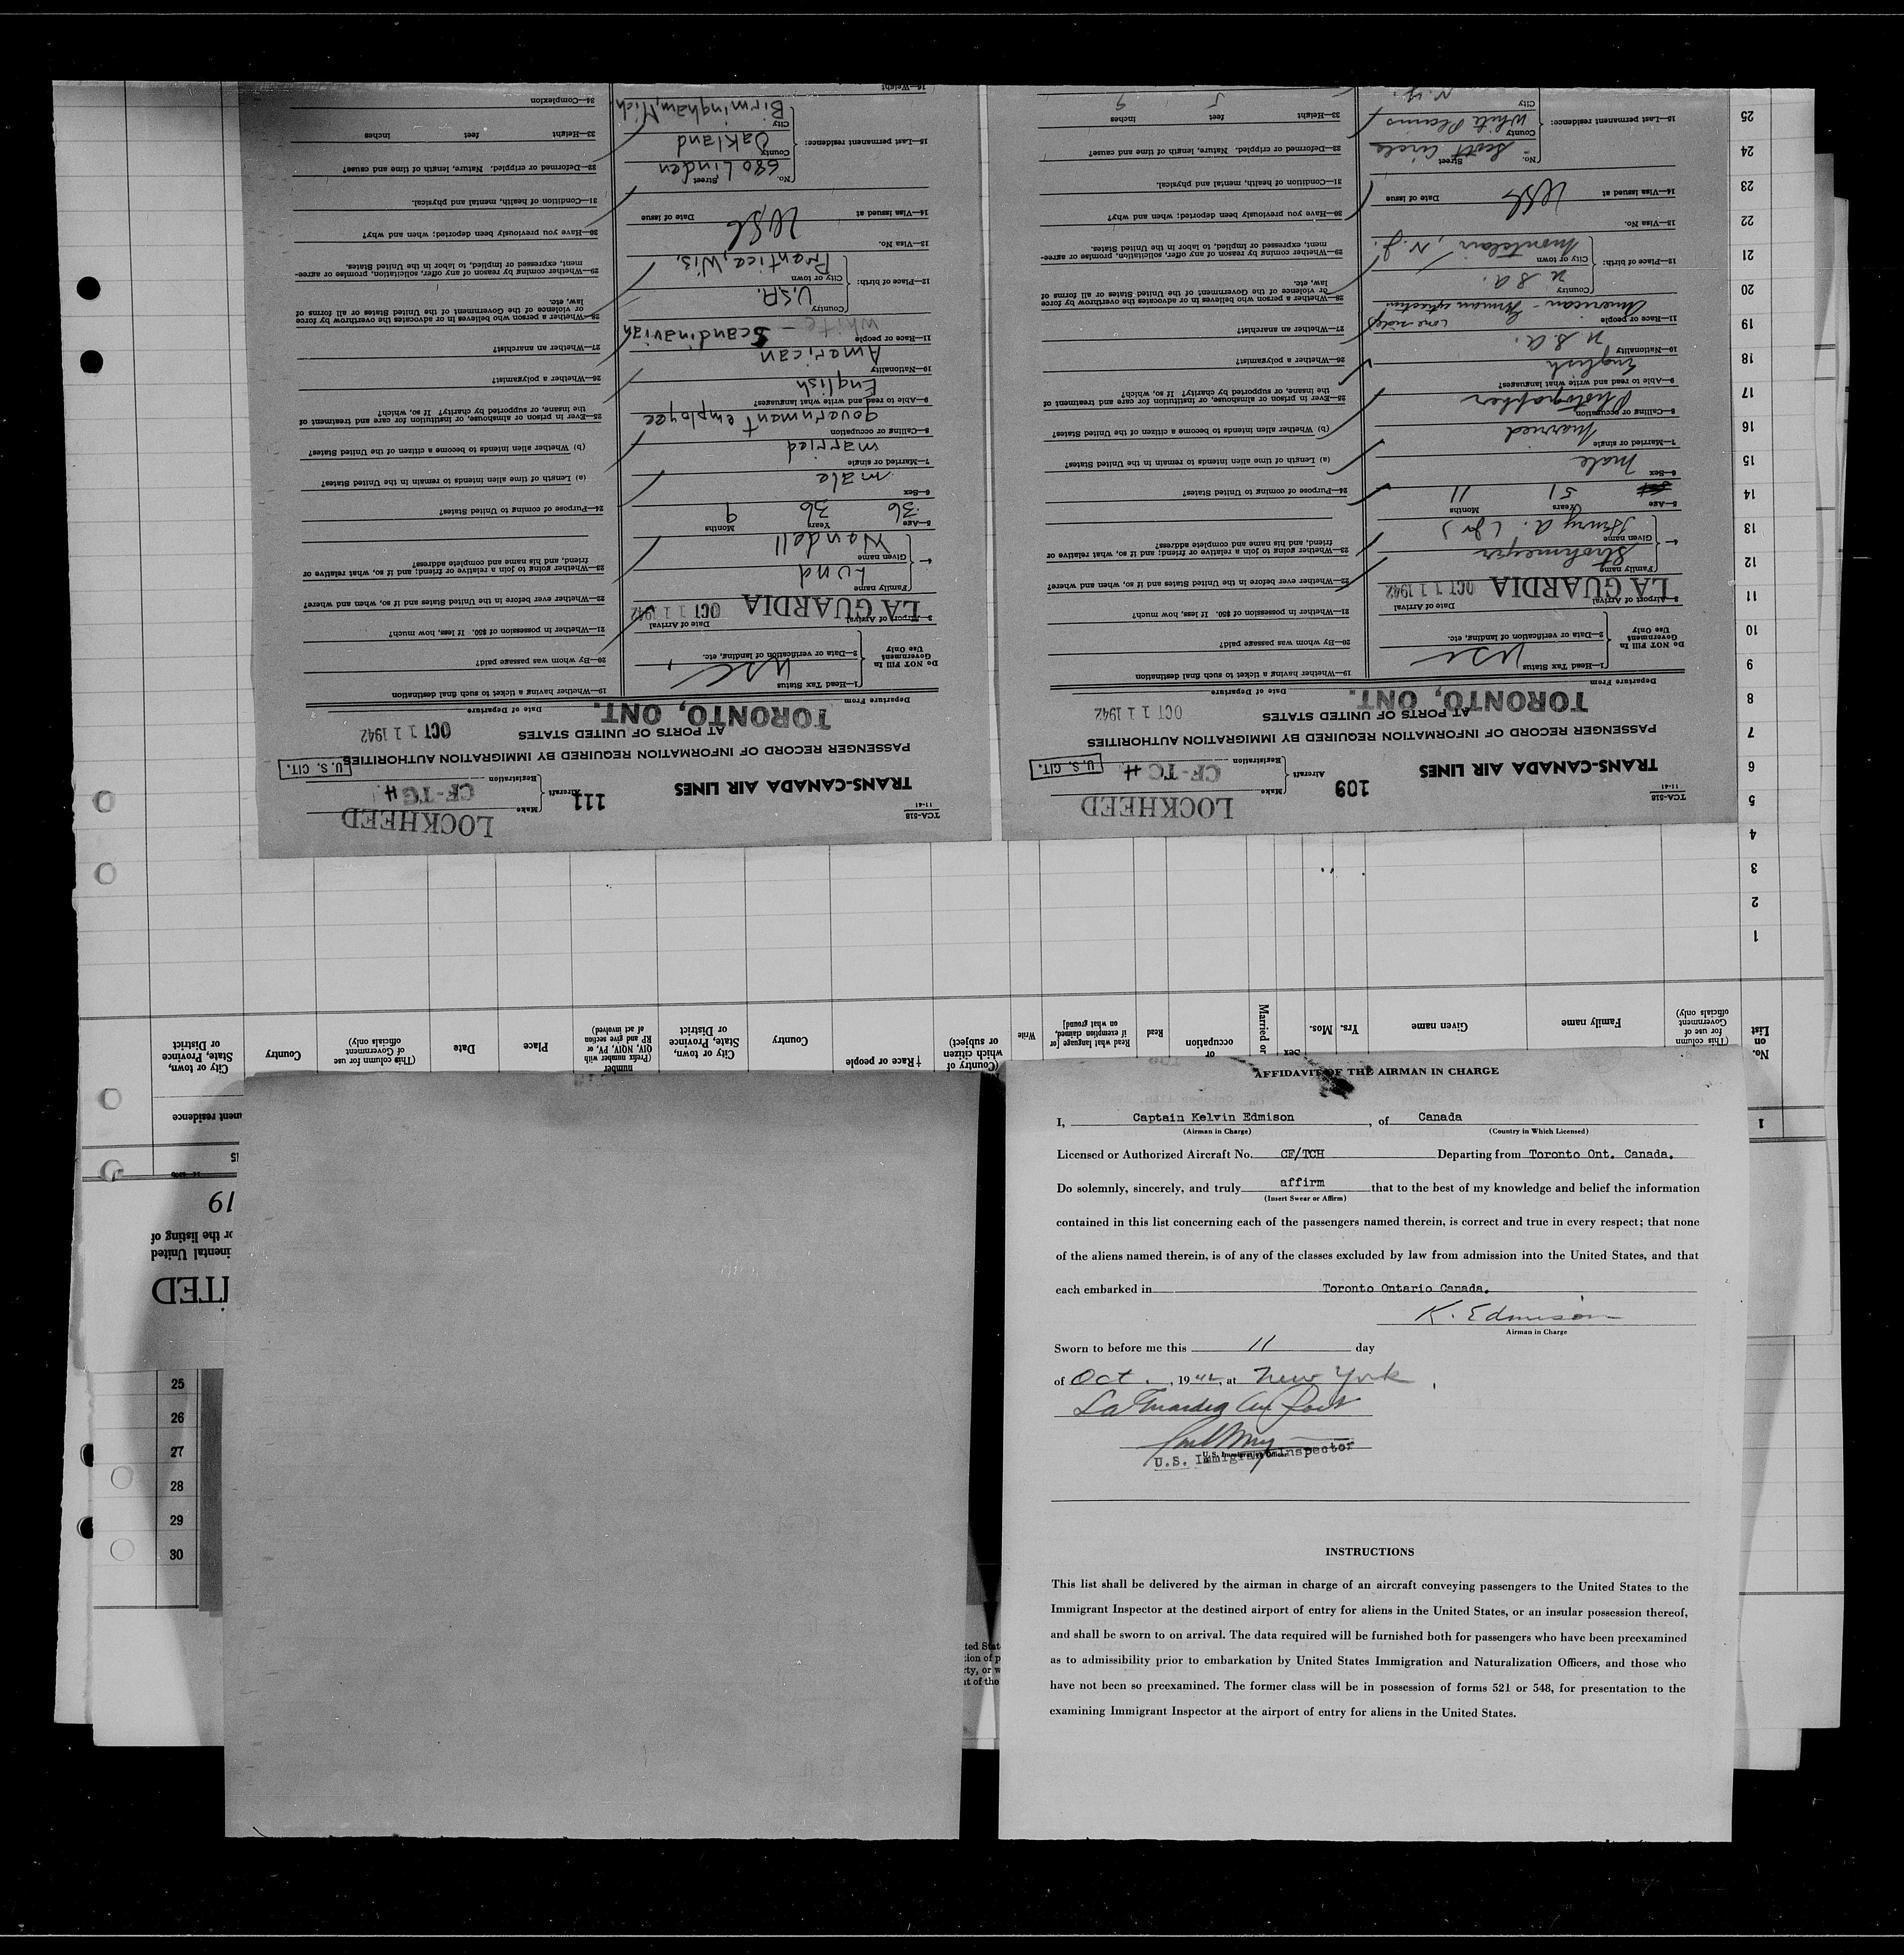 AFFIDAVIT OF THE AIRMAN IN CHARGE
I, Captain Kelvin Edmison, of Canada
(Airman in Charge) (Country in Which Licensed)
Licensed or Authorized Aircraft No. CF/TCH Departing from Toronto Ont. Canada.
Do solemnly, sincerely, and truly affirm that to the best of my knowledge and belief the information
(Insert Swear or Affirm)
contained in this list concerning each of the passengers named therein, is correct and true in every respect; that none
of the aliens named therein, is of any of the classes excluded by law from admission into the United States, and that
each embarked in Toronto Ontario Canada.
K. Edmison
Airman in Charge
Sworn to before me this 11 day
of Oct. , 1942, at New York
La Guardia Air Port
U.S. Immigrant Inspector
INSTRUCTIONS
This list shall be delivered by the airman in charge of an aircraft conveying passengers to the United States to the
Immigrant Inspector at the destined airport of entry for aliens in the United States, or an insular possession thereof,
and shall be sworn to on arrival. The data required will be furnished both for passengers who have been preexamined
as to admissibility prior to embarkation by United States Immigration and Naturalization Officers, and those who
have not been so preexamined. The former class will be in possession of forms 521 or 548, for presentation to the
examining Immigrant Inspector at the airport of entry for aliens in the United States.
25
26
27
28
29
30
TCA-518
11-41
TRANS-CANADA AIR LINES
109
Aircraft
Make LOCKHEED
Registration CF-TCH
U.S. CIT.
PASSENGER RECORD OF INFORMATION REQUIRED BY IMMIGRATION AUTHORITIES
AT PORTS OF UNITED STATES
TORONTO, ONT. OCT 11 1942
Departure From Date of Departure
Do NOT Fill In Government Use Only
1—Head Tax Status USC
2—Data or verification of landing, etc.
3—Airport of Arrival LA GUARDIA Date of Arrival OCT 11 1942
4— Family name Strohmeyer
Given name Henry A. (Jr)
5—Age 51 Years 11 Months
6—Sex Male
7—Married or single Married
8—Calling or occupation Photographer
9—Able to read and write what languages? English
10—Nationality U.S.A.
11—Race or people American - German extraction (one side)
12—Place of birth: Country U.S.A.
City or town Montclair, N.J.
13—Visa No.
14—Visa Issued at Date of Issue
15—Last permanent residence: No. - Street Scott Circle
County White Plains
City N.Y.
19—Whether having a ticket to such final destination
20—By whom was passage paid?
21—Whether in possession of $50. If less, how much?
22—Whether ever before in the United States and if so, when and where?
23—Whether going to join a relative or friend; and if so, what relative or
friend, and his name and complete address?
24—Purpose of coming to United States?
(a) Length of time alien intends to remain in the United States?
(b) Whether alien intends to become a citizen of the United States?
25—Ever in prison or almshouse, or institution for care and treatment of
the insane, or supported by charity? If so, which?
26—Whether a polygamist?
27—Whether an anarchist?
28—Whether a person who believes in or advocates the overthrow by force
or violence of the Government of the United States or all forms of
law, etc.
29—Whether coming by reason of any offer, solicitation, promise or agree-
ment, expressed or implied, to labor in the United States.
30—Have you previously been deported; when and why?
31—Condition of health, mental and physical.
32—Deformed or crippled. Nature, length of time and cause?
33—Height 5 feet 9 inches
TCA-518
11-41
TRANS-CANADA AIR LINES
111
Aircraft
Make LOCKHEED
Registration CF-TGH
U.S. CIT.
PASSENGER RECORD OF INFORMATION REQUIRED BY IMMIGRATION AUTHORITIES
AT PORTS OF UNITED STATES
TORONTO, ONT. OCT 11 1942
Departure From Date of Departure
Do NOT Fill In Government Use Only
1—Head Tax Status USC
2—Data or verification of landing, etc.
3—Airport of Arrival LA GUARDIA Date of Arrival OCT 11 1942
4— Family name Lund
Given name Wendell
5—Age 36 36 Years 9 Months
6—Sex male
7—Married or single married
8—Calling or occupation government employee
9—Able to read and write what languages? English
10—Nationality American
11—Race or people white - Scandinavian
12—Place of birth: Country U.S.A.
City or town Prentice, Wis.
13—Visa No.
14—Visa Issued at Date of Issue
15—Last permanent residence: No. 680 Street Linden
County Oakland
City Birmingham, Mich
16—Weight
19—Whether having a ticket to such final destination
20—By whom was passage paid?
21—Whether in possession of $50. If less, how much?
22—Whether ever before in the United States and if so, when and where?
23—Whether going to join a relative or friend; and if so, what relative or
friend, and his name and complete address?
24—Purpose of coming to United States?
(a) Length of time alien intends to remain in the United States?
(b) Whether alien intends to become a citizen of the United States?
25—Ever in prison or almshouse, or institution for care and treatment of
the insane, or supported by charity? If so, which?
26—Whether a polygamist?
27—Whether an anarchist?
28—Whether a person who believes in or advocates the overthrow by force
or violence of the Government of the United States or all forms of
law, etc.
29—Whether coming by reason of any offer, solicitation, promise or agree-
ment, expressed or implied, to labor in the United States.
30—Have you previously been deported; when and why?
31—Condition of health, mental and physical.
32—Deformed or crippled. Nature, length of time and cause?
33—Height feet inches
34—Complexion
No. on List
(This column for use of Government officials only)
Family name
Given name
Yrs. Mos.
Sex
Married or
or occupation
Read
Read what language [or if exemption claimed, on what ground]
Write
(Country of which citizen or subject)
†Race or people
Country
City or town, State, Province or District
number (Prefix number with QIV, NQIV, PV, or RP and give section of act involved)
Place
Date
(This column for use of Government officials only)
Country
City or town, State, Province or District
1
2
3
4
5
6
7
8
9
10
11
12
13
14
15
16
17
18
19
20
21
22
23
24
25